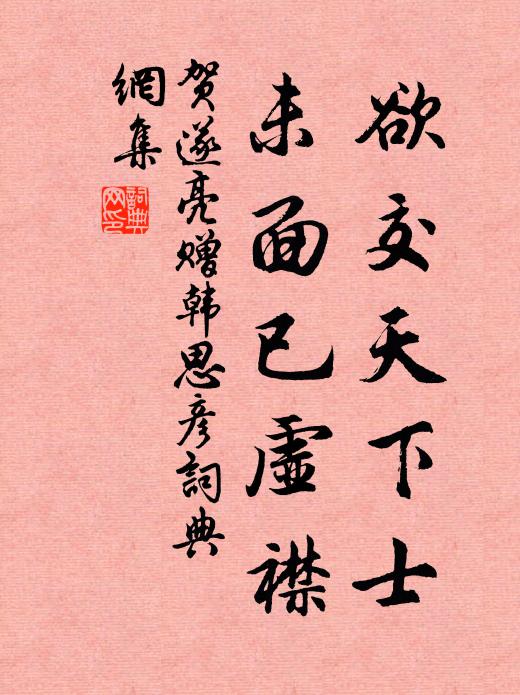 欲交天下士
未面已虛襟
贺遂亮赠韩思彦詞典
網集
詞典網印